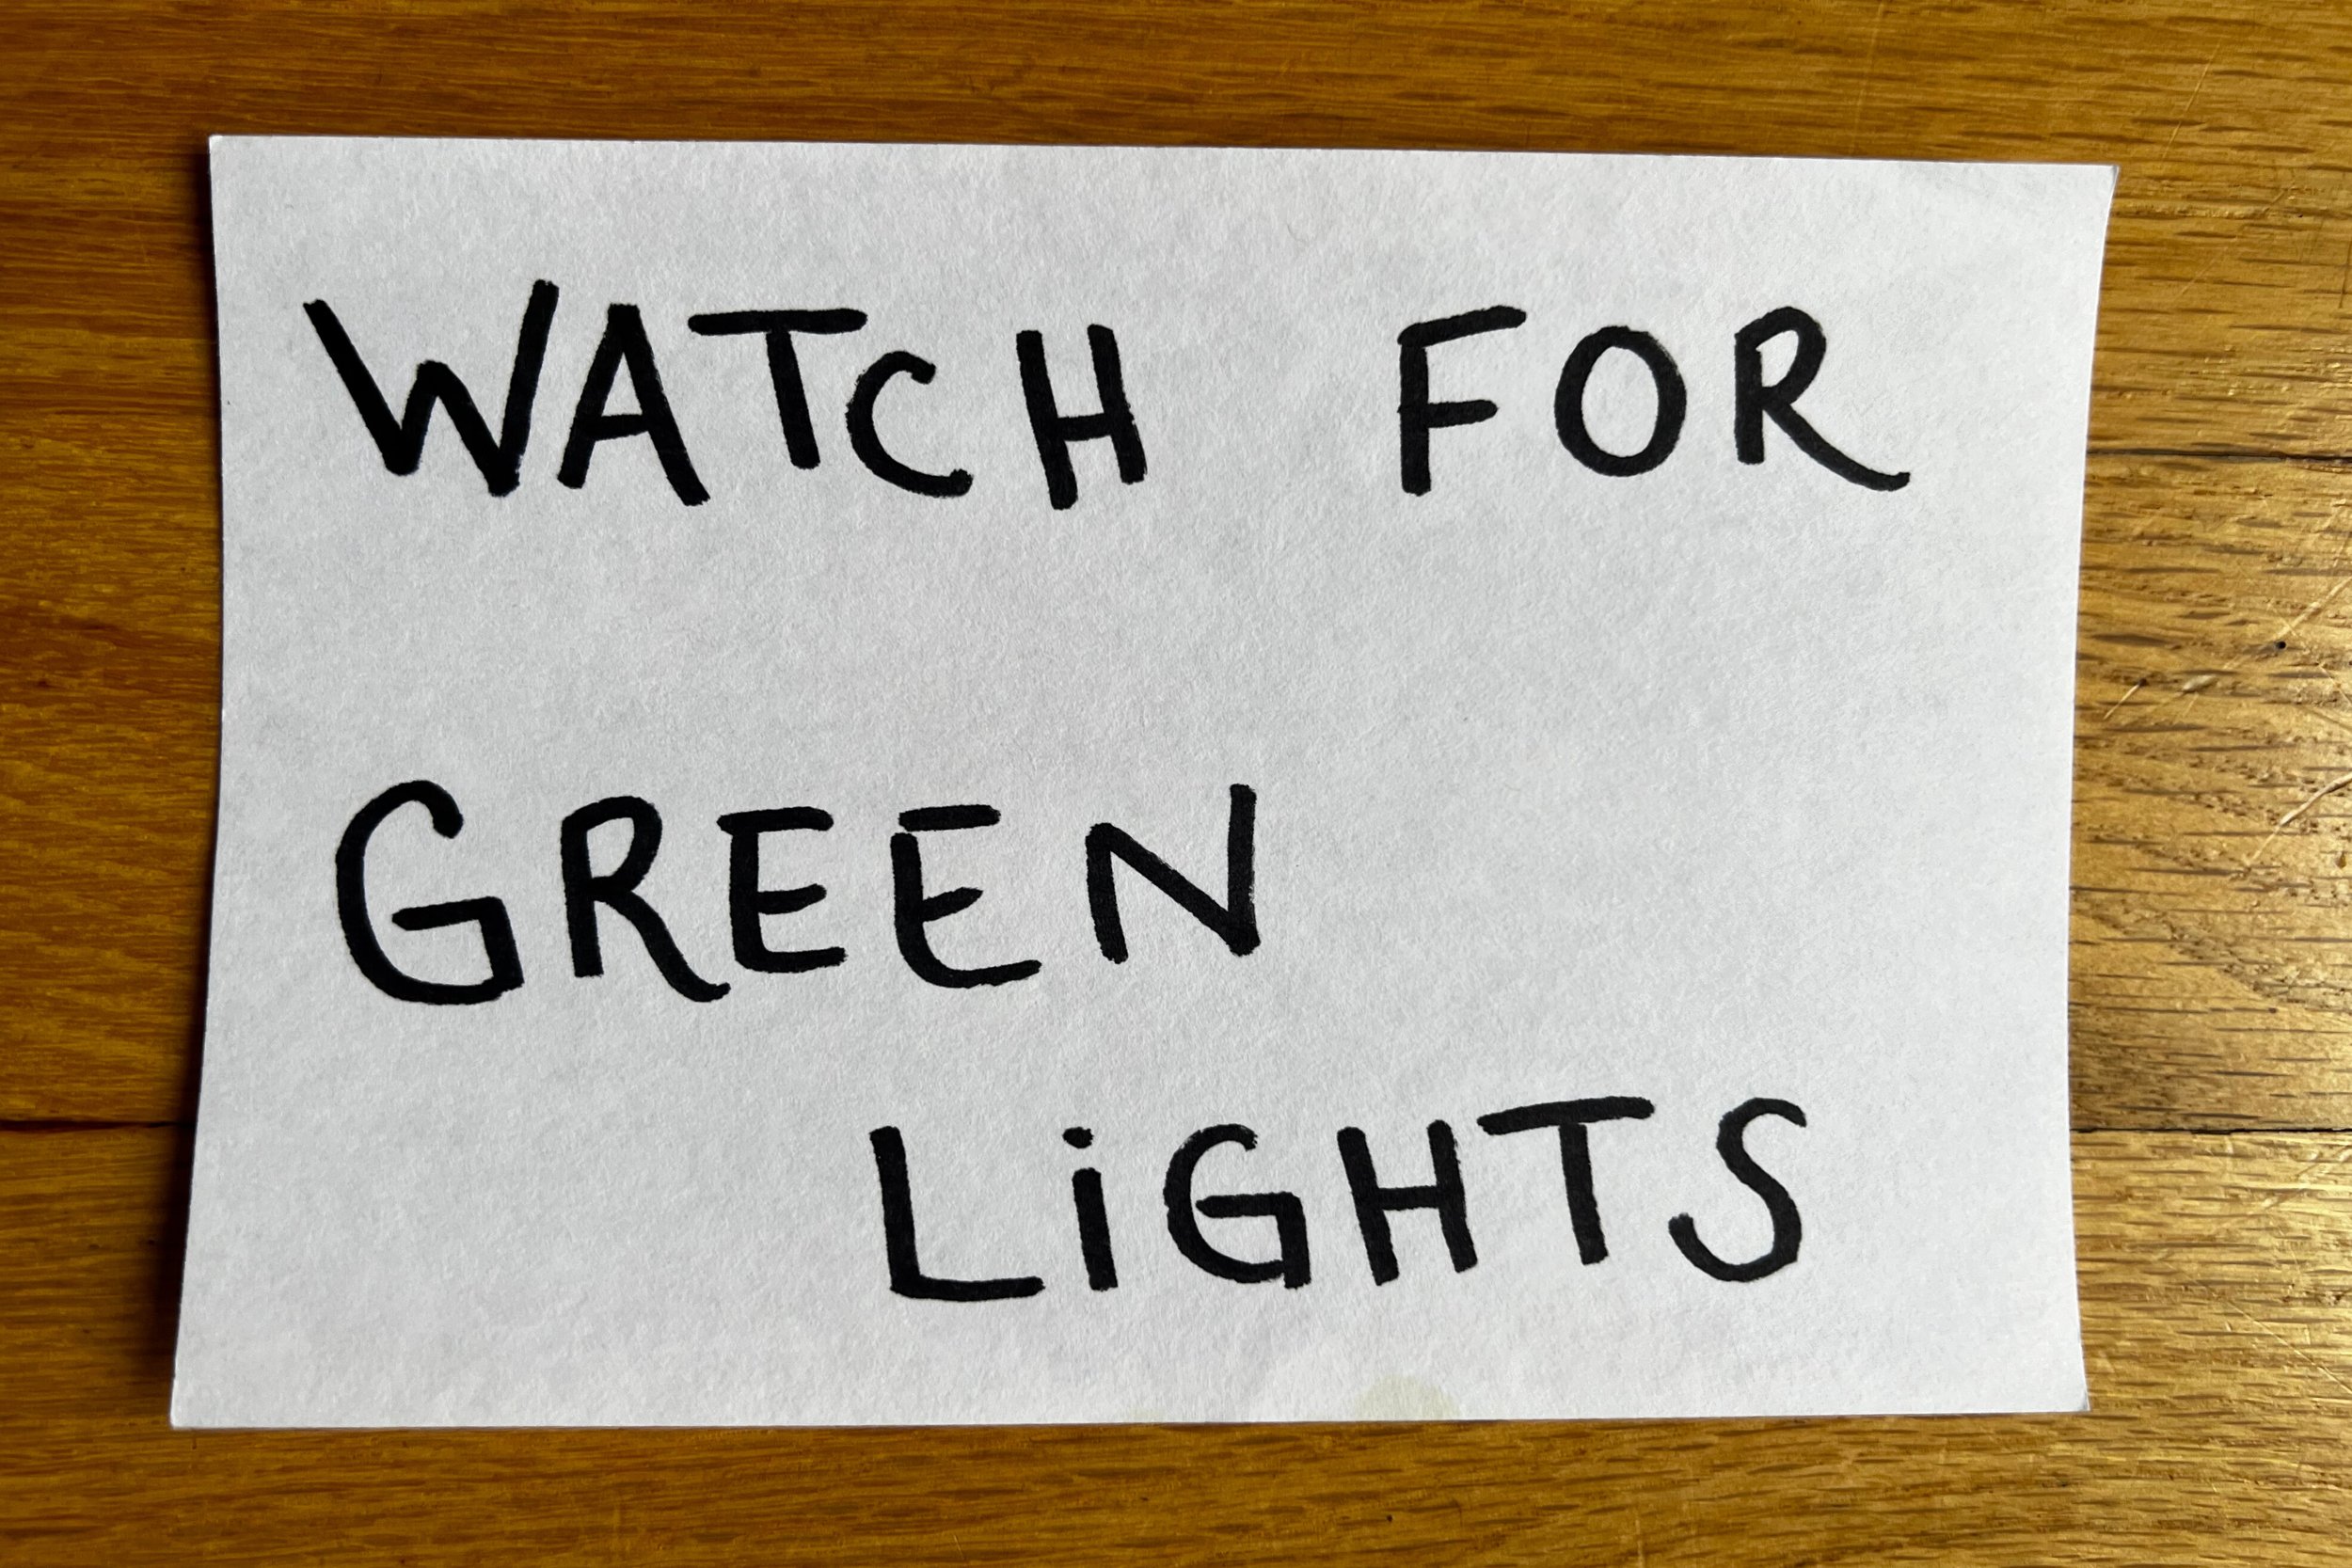 WATCH FOR
GREEN
LiGHTS